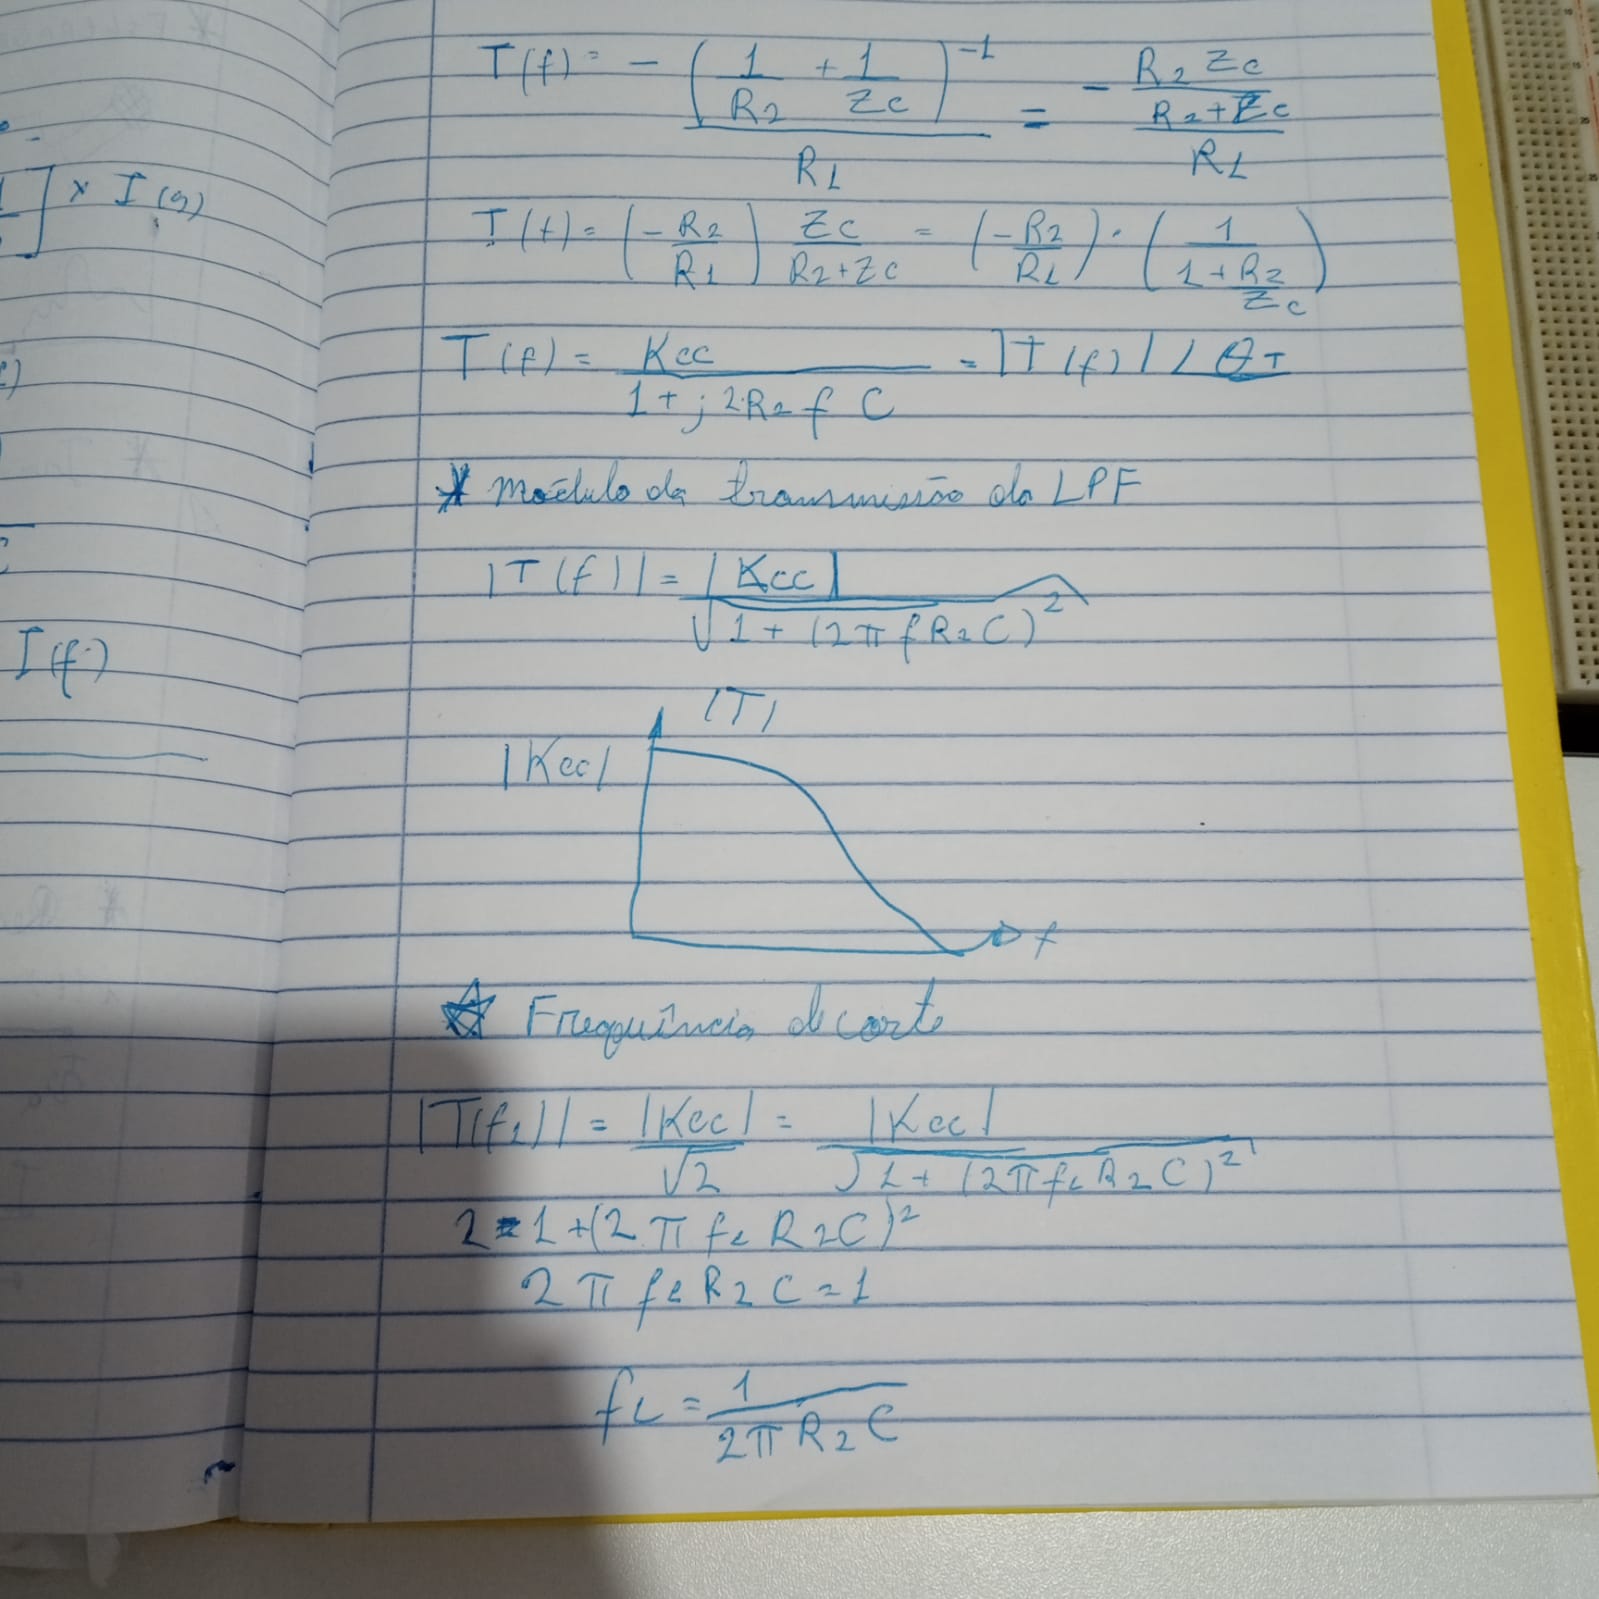 T(f) = - (1/R2 + 1/Zc)^-1 / R1 = - (R2 Zc / (R2+Zc)) / R1
] x I(s)
T(f) = (-R2/R1) Zc/(R2+Zc) = (-R2/R1) · (1/(1+R2/Zc))
T(f) = Kcc / (1 + j 2·R2 f C) = |T(f)| ∠θT
* Módulo da transmissão do LPF
|T(f)| = |Kcc| / √(1 + (2π f R2 C)^2)
I(f)
|T|
|Kcc|
f
☆ Frequência de corte
|T(f1)| = |Kcc|/√2 = |Kcc| / √(1 + (2π fc R2 C)^2)
2 = 1 + (2 π fc R2C)^2
2 π fc R2 C = 1
fc = 1 / (2π R2 C)